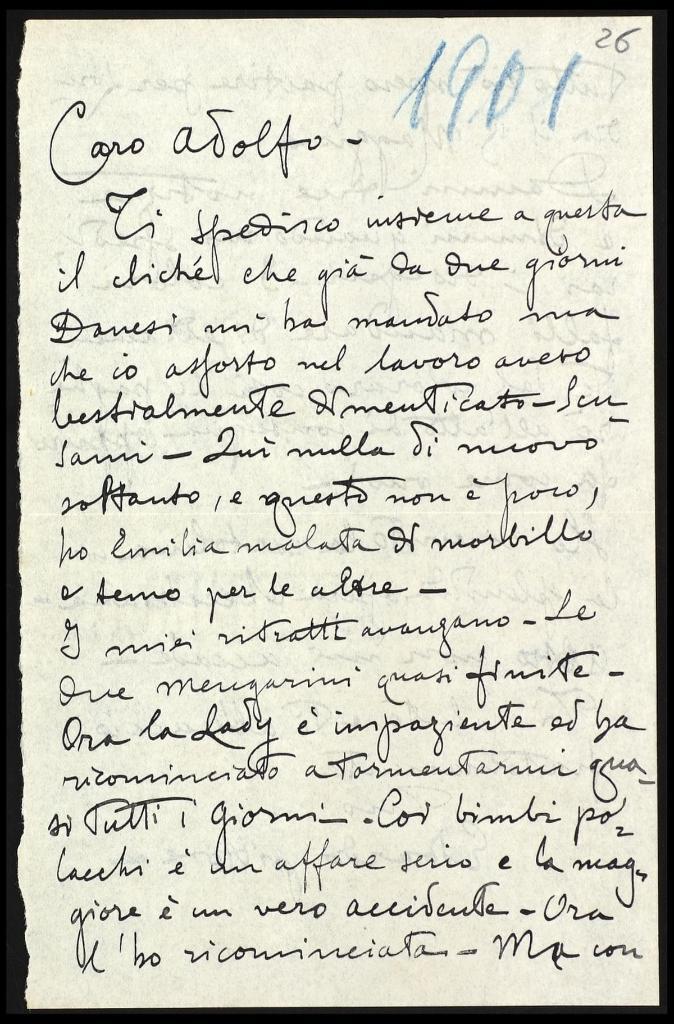 26
1901
Caro Adolfo -
Ti spedisco insieme a questa
il cliché che già da due giorni
Danesi mi ha mandato ma
che io assorto nel lavoro avevo
bestialmente dimenticato - Scu
sami - Qui nulla di nuovo
soltanto, e questo non è poco,
ho Emilia malata di morbillo
e temo per le altre -
I miei ritratti avanzano - Le
due Mengarini quasi finite -
Ora la Lady è impaziente ed ha
ricominciato a tormentarmi qua-
si tutti i giorni - Coi bimbi po-
lacchi è un affare serio e la mag-
giore è un vero accidente - Ora
l'ho ricominciata - Ma con